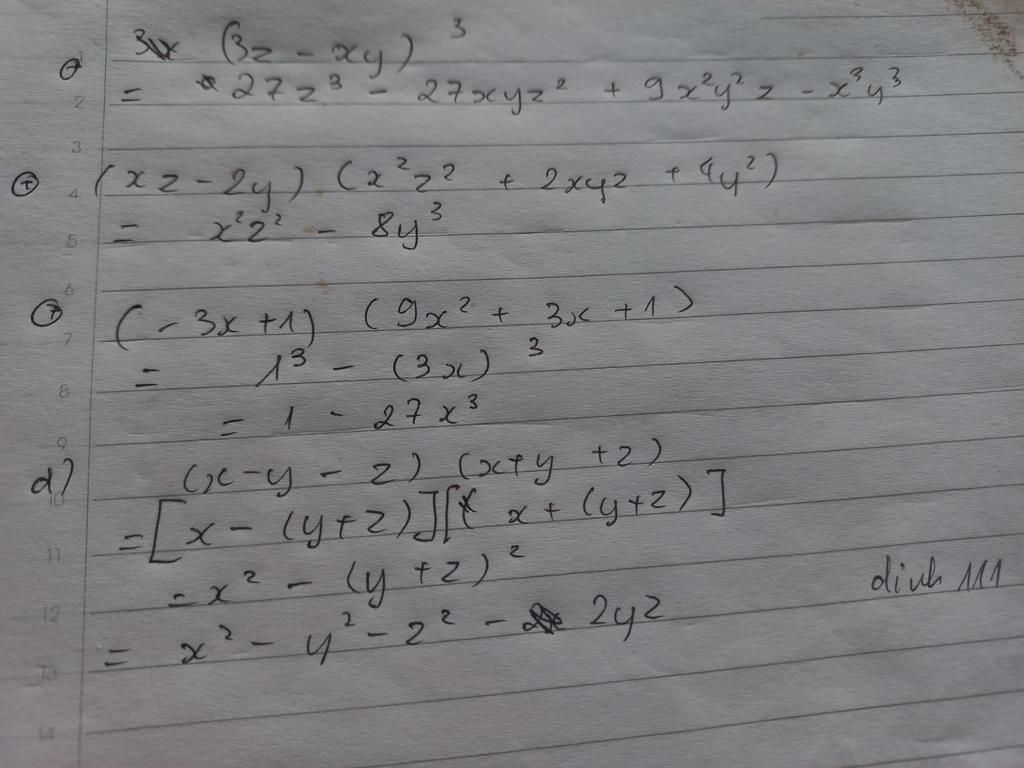 (3z - xy)³
= 27z³ - 27xyz² + 9x²y²z - x³y³
(xz - 2y) (x²z² + 2xyz + 4y²)
= x²z² - 8y³
(-3x+1) (9x² + 3x + 1)
= 1³ - (3x)³
= 1 - 27x³
d) (x-y-z) (x+y+z)
= [x - (y+z)][x + (y+z)]
= x² - (y+z)²
dinh 111
= x² - y² - z² - 2yz